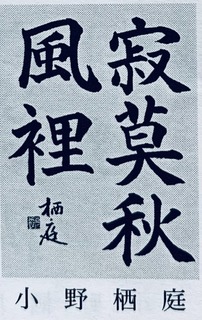 寂莫秋
風裡
栖庭
小野栖庭